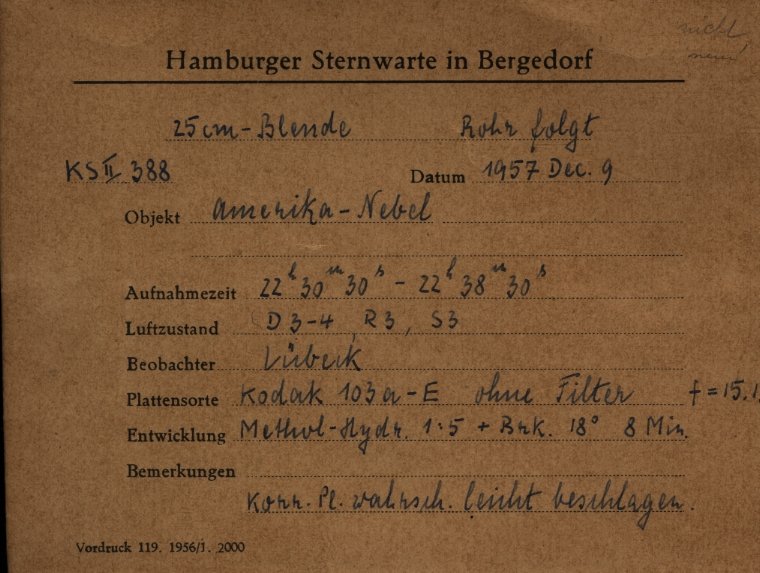 nicht
Hamburger Sternwarte in Bergedorf
25cm-Blende Rohr folgt
KS II 388 Datum 1957 Dec. 9
Objekt Amerika-Nebel
Aufnahmezeit 22h 30m 30s - 22h 38m 30s
Luftzustand D 3-4, R3, S3
Beobachter Lübeck
Plattensorte Kodak 103a-E ohne Filter f = 15.
Entwicklung Methol-Hydr. 1:5 + Brk. 18° 8 Min.
Bemerkungen
Korr. Pl. wahrsch. leicht beschlagen.
Vordruck 119. 1956/1. 2000